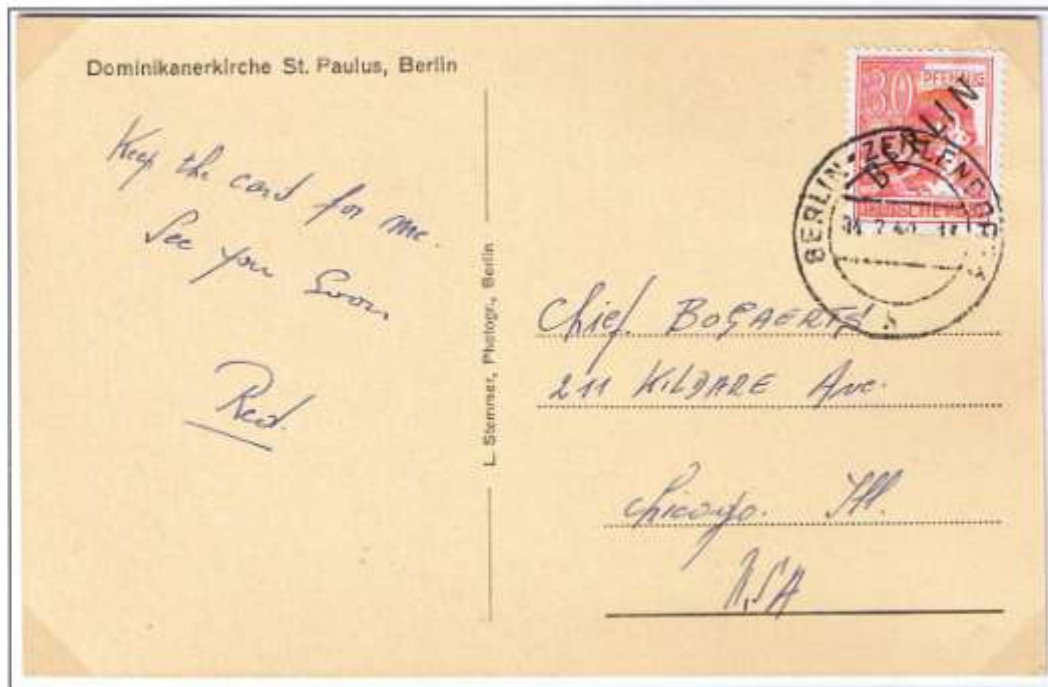 Dominikanerkirche St. Paulus, Berlin
Keep the card for me.
See you Soon
Red.
L. Stemmer, Photogr., Berlin
30 PFENNIG
BERLIN
DEUTSCHE POST
BERLIN-ZEHLENDORF
Chief. BOGAERTS
211 KILDARE Ave.
Chicago. Ill.
USA